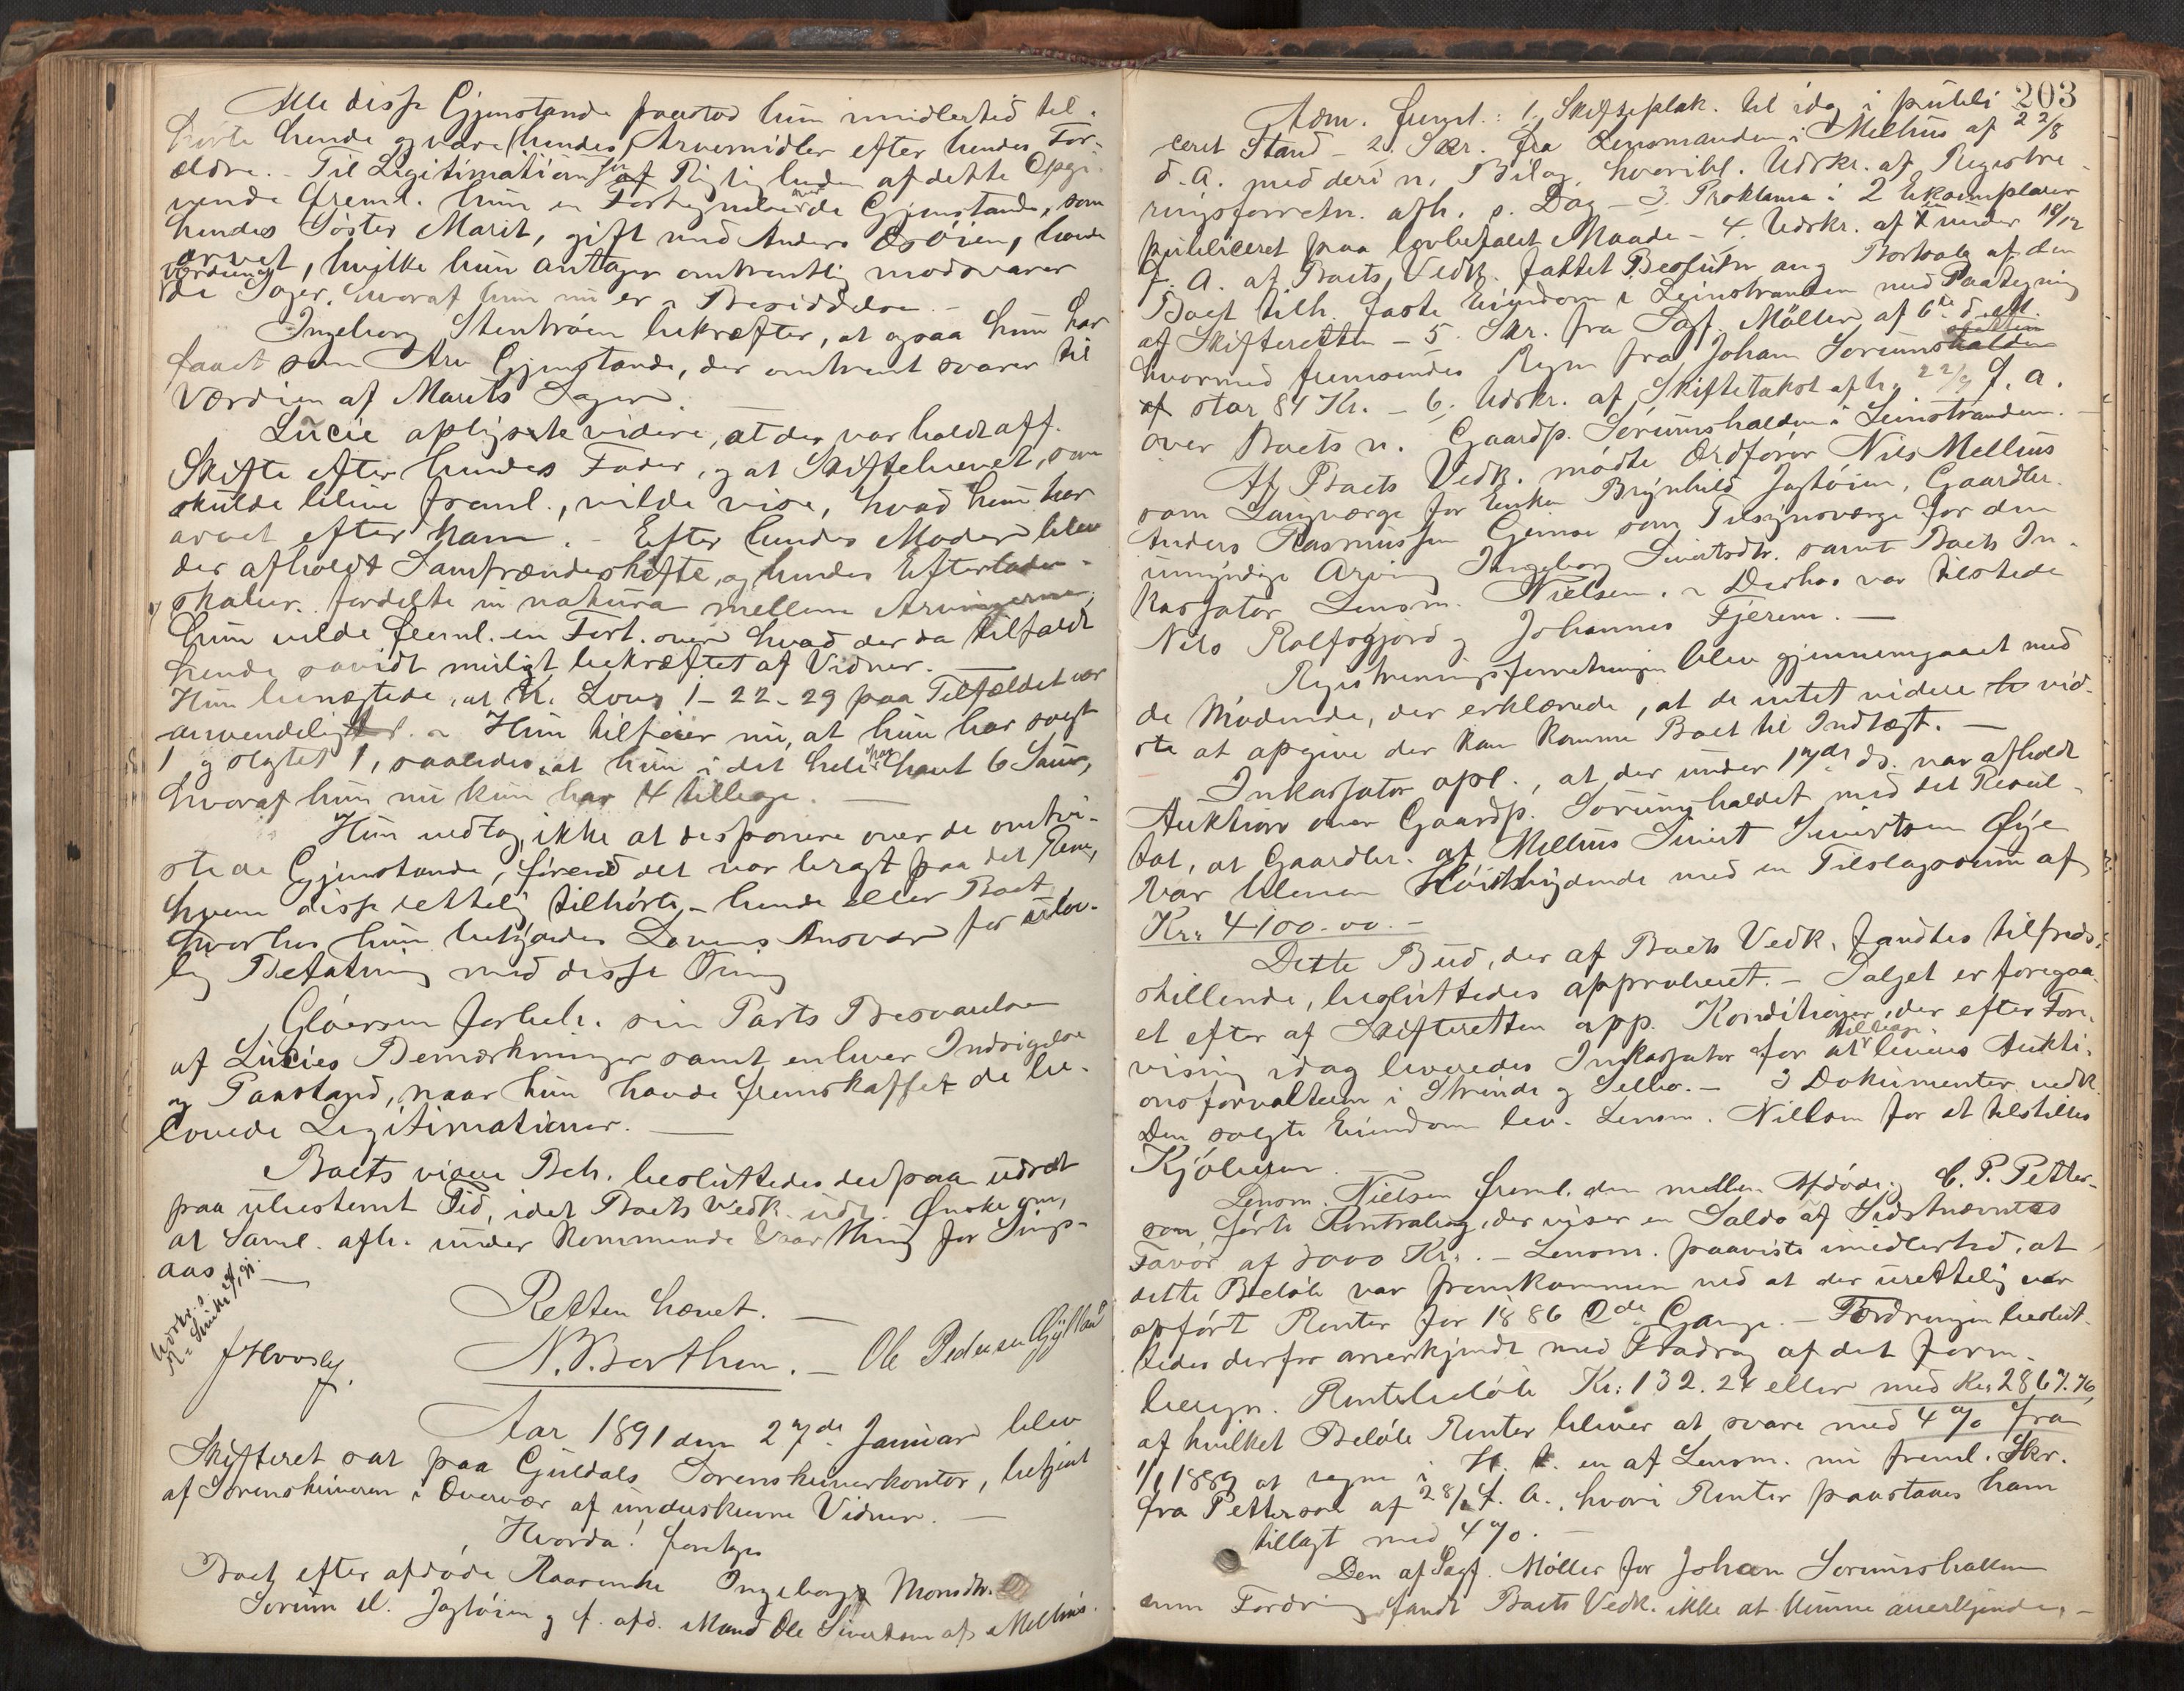 Alle disse Gjenstande paastod hun imidlertid til-
hørte hende og være hendes Arvemidler efter hendes For-
ældre. - Til Legitimation for af Rigtigheden af dette Opgi-
vende freml. hun en Fortegnelse over de Gjenstande, som
hendes Søster Marit, gift med Anders Øsøien, havde
arvet, hvilke hun antager omtrentlig modsvarer
Værdien af
de Sager, hvoraf hun nu er i Besiddelse. -
Ingeborg Stentrøen bekræfter, at ogsaa hun har
faaet som Arv Gjenstande, der omtrent svarer til
Værdien af Marits Sager.
Lucie oplyste videre, at der var holdt off.
Skifte efter hendes Fader, og at Skiftebrevet, som
skulde blive freml., vilde vise, hvad hun har
arvet efter ham. - Efter hendes Moder blev
der afholdt Samfrændeskifte, og hendes Efterladen-
skaber fordelte in natura mellem Arvingerne;
hun vilde freml. en Fort. over hvad der da tilfaldt
hende saavidt muligt bekræftet af Vidner. —
Hun benægtede, at K. Lovs 1-22-29 paa Tilfældet var
anvendeligt. - Hun tilføier nu, at hun har solgt
1 og slagtet 1, saaledes at hun i det hele har havt 6 Sauer,
hvoraf hun nu kun har 4 tilbage. —
Hun vedtog, ikke at disponere over de omtvi-
stede Gjenstande, førend det var bragt paa det Rene,
hvem disse rettelig tilhørte, - hende eller Boet,
hvorhos hun betydedes Lovens Ansvar for ulov-
lig Befatning med disse Ting
Gløersen forbeh. sin Parts Besvarelse
af Lucies Bemærkninger samt enhver Indsigelse
og Paastand, naar hun havde fremskaffet de be-
lovede Legitimationer. —
Boets videre Beh. besluttedes derpaa udsat
paa ubestemt Tid, idet Boets Vedk. udt. Ønske om,
at Saml. afh. under kommende Vaarthing for Sings-
aas. —
Retten hævet. —
J Hovsly. N. P. Berthen. — Ole Pedersen Gylland
Aar 1891 den 27de Januar blev
Skifteret sat paa Guldals Sorenskriverkontor, betjent
af Sorenskriveren i Overvær af underskrevne Vidner. —
Hvorda! foretoges
Boet efter afdøde Kaarenke Ingeborg Monsdtr.
Sorum el. Jagtøien og f. afd. Mand Ole Sivertsen af Melhus.
203
Adm. freml.: 1. Skifteplak. til idag i publi-
ceret Stand - 2. Skr. fra Lensmanden i Melhus af 22/8
d. A. med deri n. Bilag, hvoribl. Udskr. af Registre-
ringsforretn. afh. s. Dag - 3. Proklama i 2 Eksemplarer
publiceret paa lovbefalet Maade - 4. Udskr. af en under 18/12
f. A. af Boets Vedk. fattet Beslutn. ang. Bortsalg af den
Boet tilh. faste Eiendom i Leinstranden med Paategning
af Skifteretten - 5. Skr. fra Sagf. Möller af 6te d. M.
hvormed fremsendes Regn fra Johan Sorumshalden
af stor 84 Kr. - 6. Udskr. af Skiftetakst afh. 22/9 f. A.
over Boets n. Gaardp. Sörumshalden i Leinstranden. —
Af Boets Vedk. mødte Ordfører Nils Melhus
som Laugværge for Enken Brynhild Jagtøien, Gaardbr.
Anders Rasmussen Gemse som Tilsynsværge for den
umyndige Arving Ingeborg Sivertsdtr. samt Boets In-
kassator Lensm. Nielsen. - Derhos var tilstede
Nils Rolfsgjord og Johannes Fjerem. —
Registreringsforretningen blev gjennemgaaet med
de Mødende, der erklærede, at de intet videre vid-
ste at opgive der kan komme Boet til Indtægt. —
Inkassator opl., at der under 17de ds. var afholdt
Auktion over Gaardp. Sorumshaldet med det Resul-
tat, at Gaardbr. af Melhus Sivert Sivertsen Øye
var bleven Høistbydende med en Tilslagssum af
Kr. 4100.00. —
Dette Bud, der af Boets Vedk. fandtes tilfreds-
stillende, besluttedes approberet. — Salget er foregaa-
et efter af Skifteretten app. Konditioner, der efter Fore-
visning idag leveredes Inkassator for at tilbage-
leveres Aukti-
onsforvalteren i Strinde og Selbo. — 3 Dokumenter vedk.
den solgte Eiendom lev. Lensm. Nielsen for at tilstilles
Kjöberen. —
Lensm. Nielsen freml. den mellem Afdøde og C. P. Petter-
son førte Kontrabog, der viser en Saldo af Sidstnævntes
Favør af 3000 Kr. — Lensm. paaviste imidlertid, at
dette Beløb var fremkommen ved at der urettelig var
opført Renter for 1886 2de Gange. — Fordringen beslut-
tedes derfor anerkjendt med Fradrag af det form.
beregn. Rentebeløb Kr. 132.24 eller med Kr. 2867.76,
af hvilket Beløb Renter bliver at svare med 4 % fra
1/1 1889 at regne i H. t. en af Lensm. nu freml. Skr.
fra Petterson af 28/2 f. A., hvori Renter paastaaes ham
tillagt med 4 %. —
Den af Sagf. Möller for Johan Sorumshallen
anm Fordring fandt Boets Vedk. ikke at kunne anerkjende, —